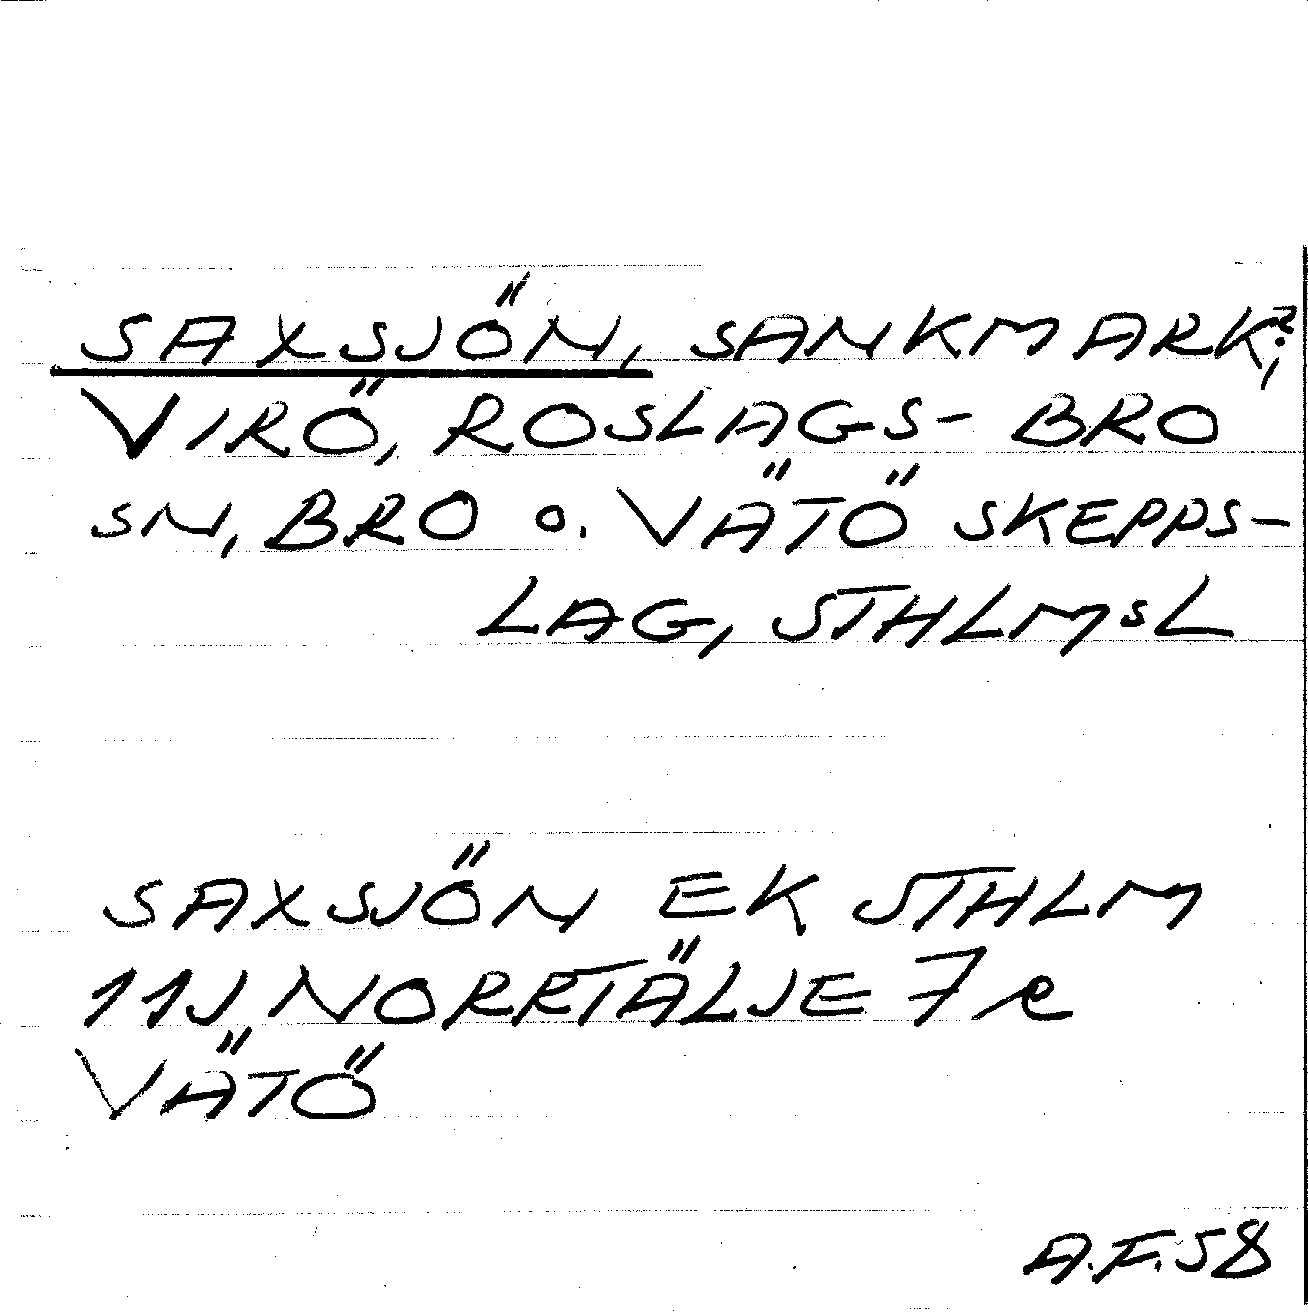 SAXSJÖN, SANKMARK?,
VIRÖ, ROSLAGS-BRO
SN, BRO o. VÄTÖ SKEPPS-
LAG, STHLMsL
SAXSJÖN EK STHLM
11J NORRTÄLJE 7e
VÄTÖ
A.F. 58